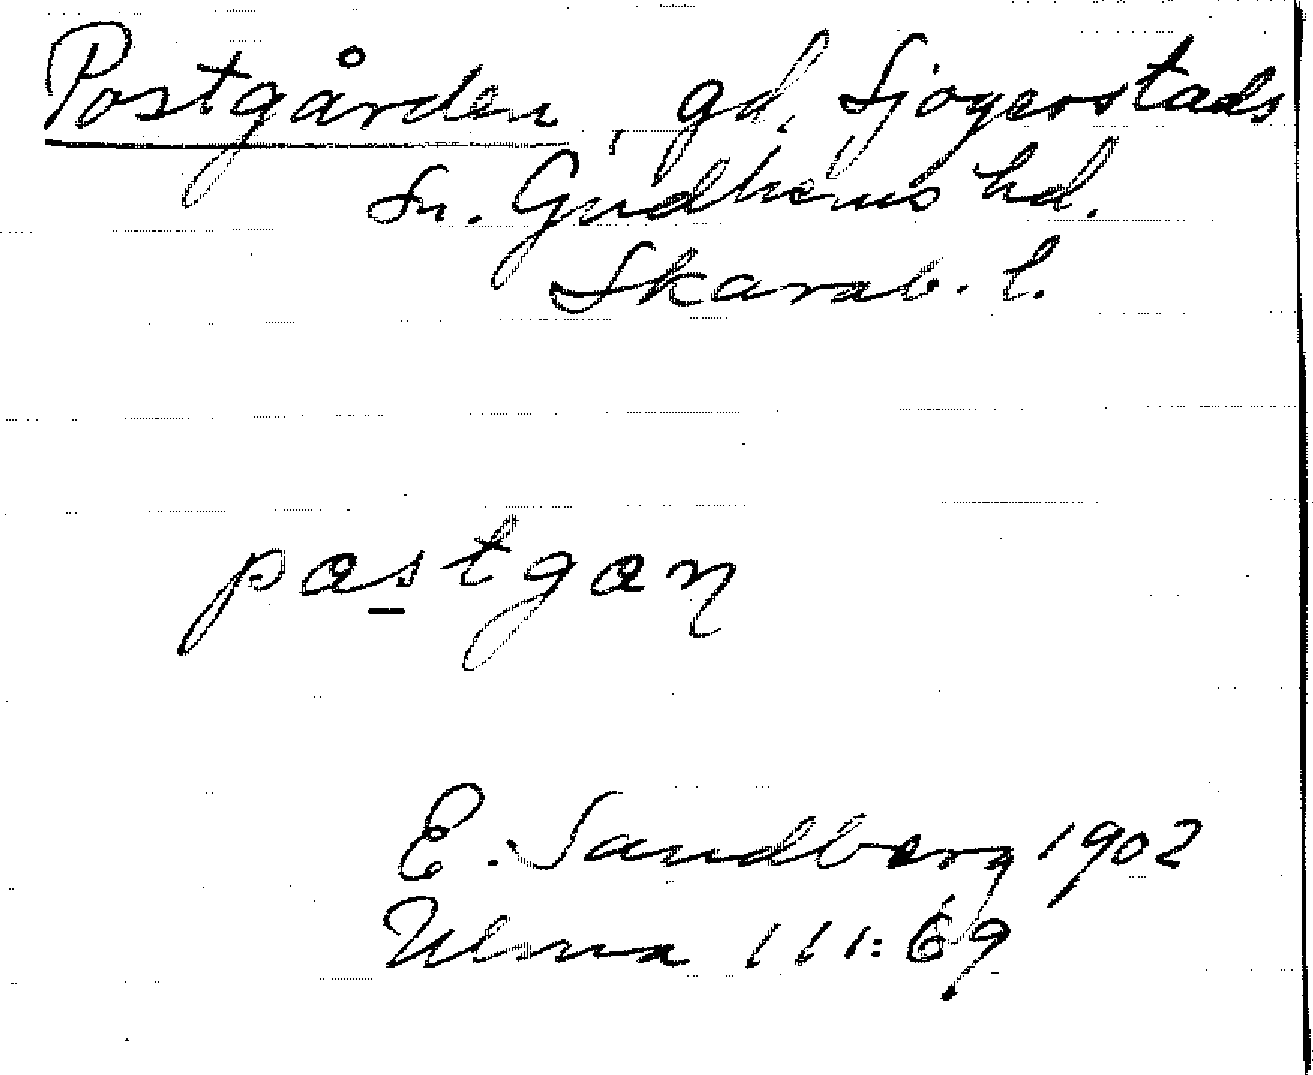 Postgården, gd, Sjogerstads
sn. Gudhems hd.
Skarab. l.
postgaη
E. Sandberg 1902
Ulma 111:69